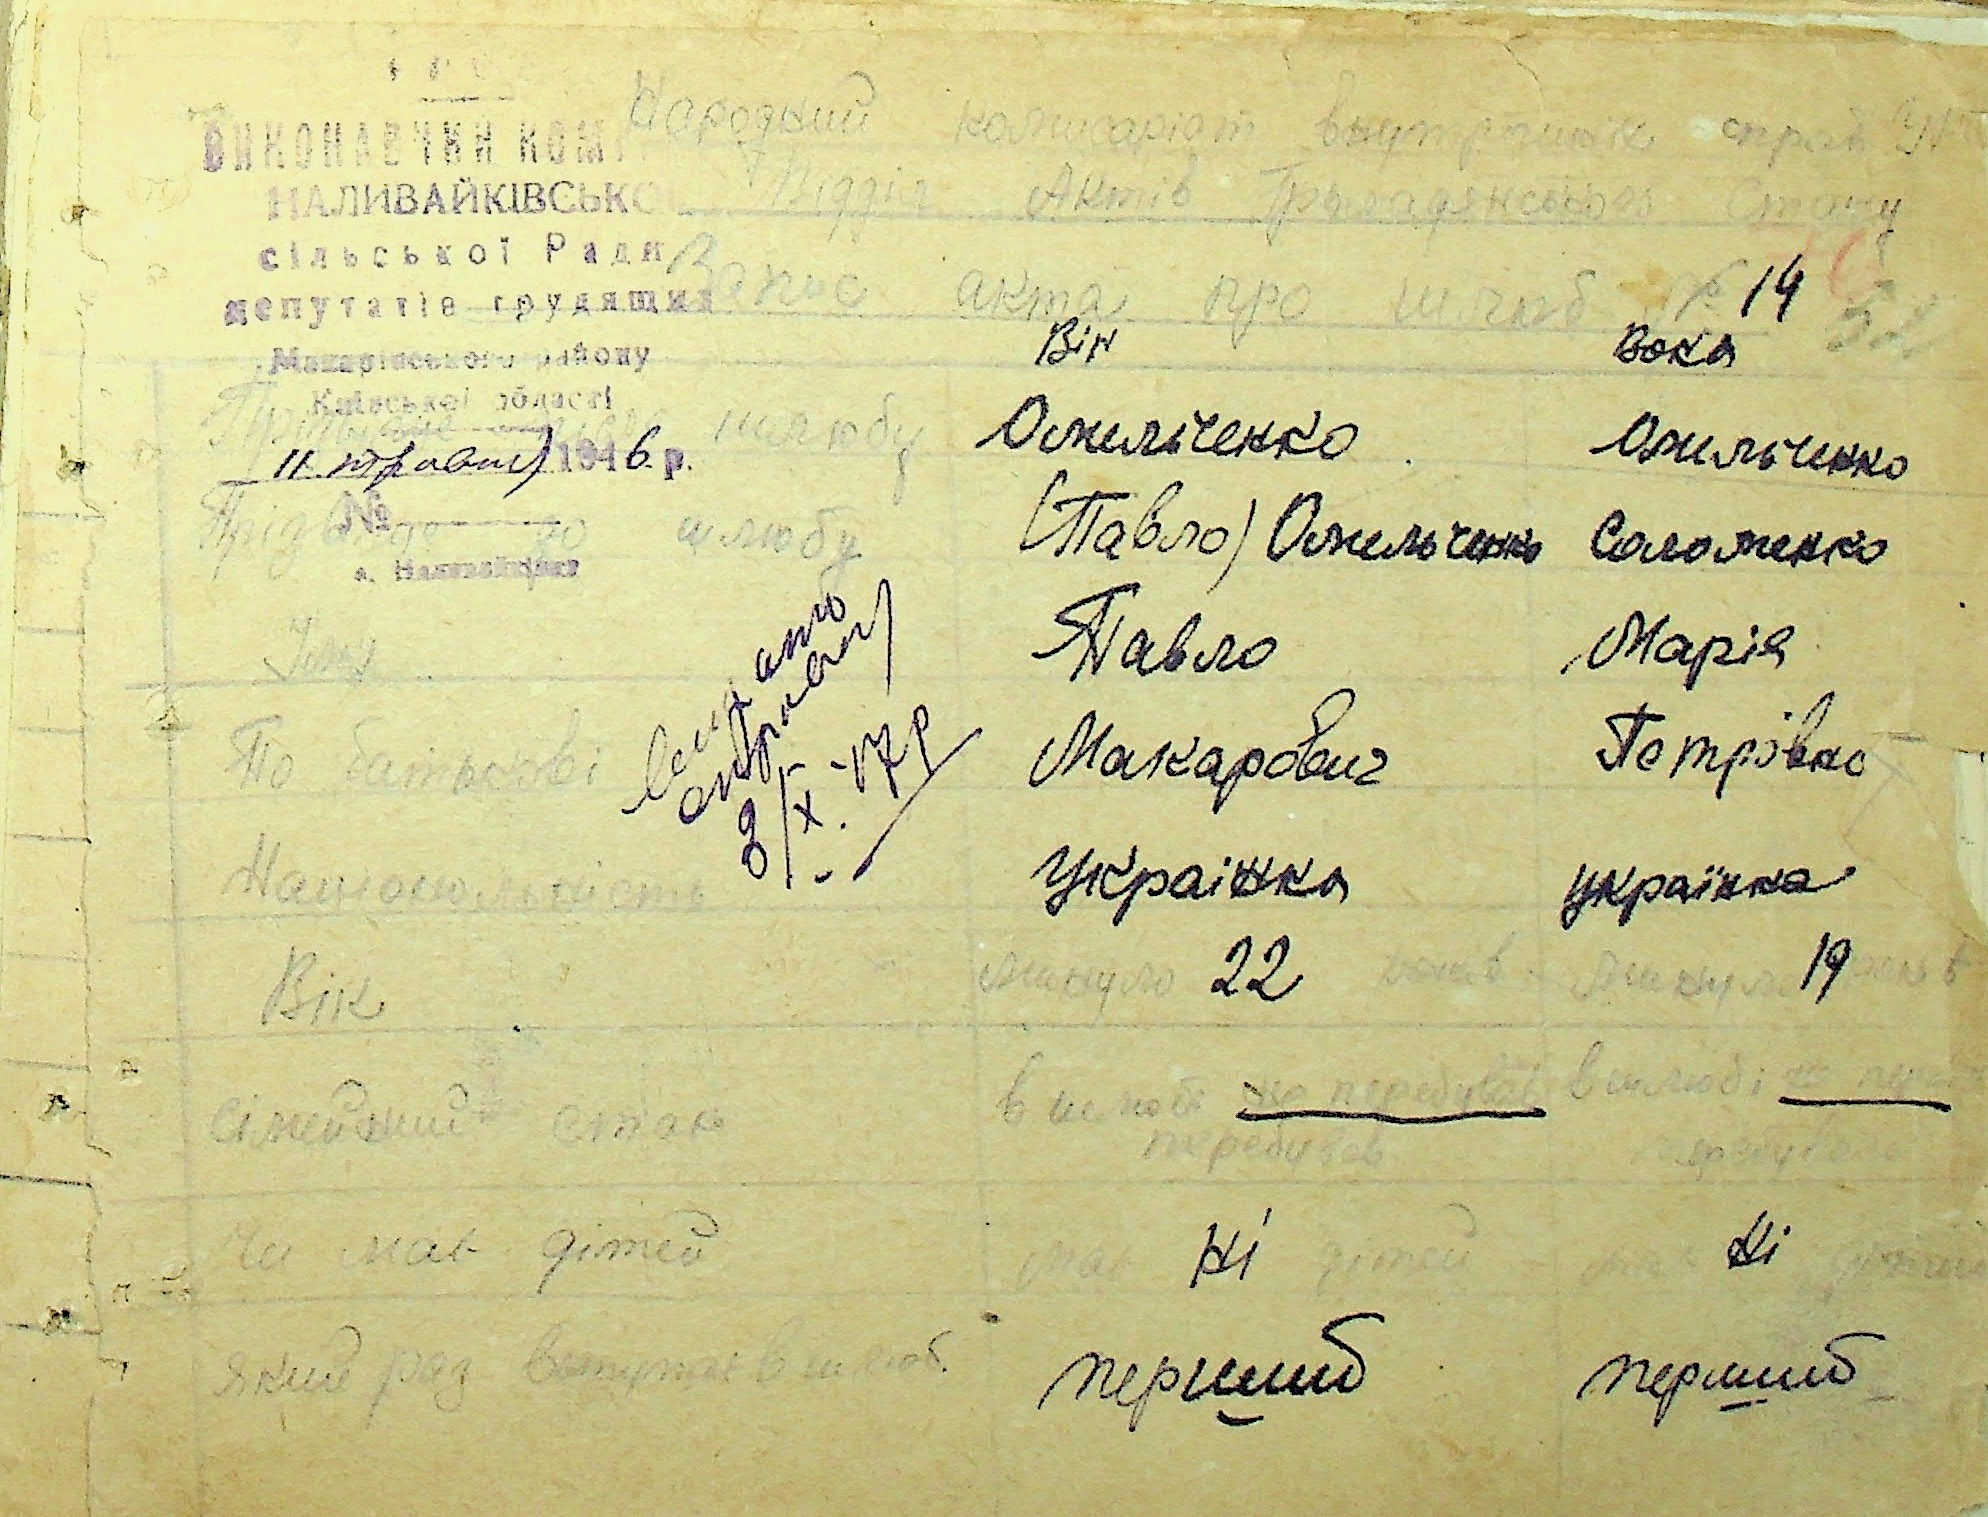 ВИКОНАВЧИЙ КОМ
НАЛИВАЙКІВСЬКО
сільської Ради
депутатів трудящих
Макарівського району
Київської області
11 травня 1946 р.
№
с. Наливайківка
Народний комісаріят внутрішніх справ
Відділ Актів Громадянського Стану
Запис акта про шлюб № 14
Він Вона
Прізвище шлюбу Омельченко Омельченко
Прізвище до шлюбу (Павло) Омельченко Соломенко
Імя Павло Марія
По батькові Макарович Петрівна
Національність Украінка українка
Вік минуло 22 років минуло 19 років
Сімейний стан в шлюбі не перебував в шлюбі не
перебував перебувала
Чи мав дітей мав Ні дітей Ні дітей
Який раз вступає в шлюб перший перший
3/X-47р